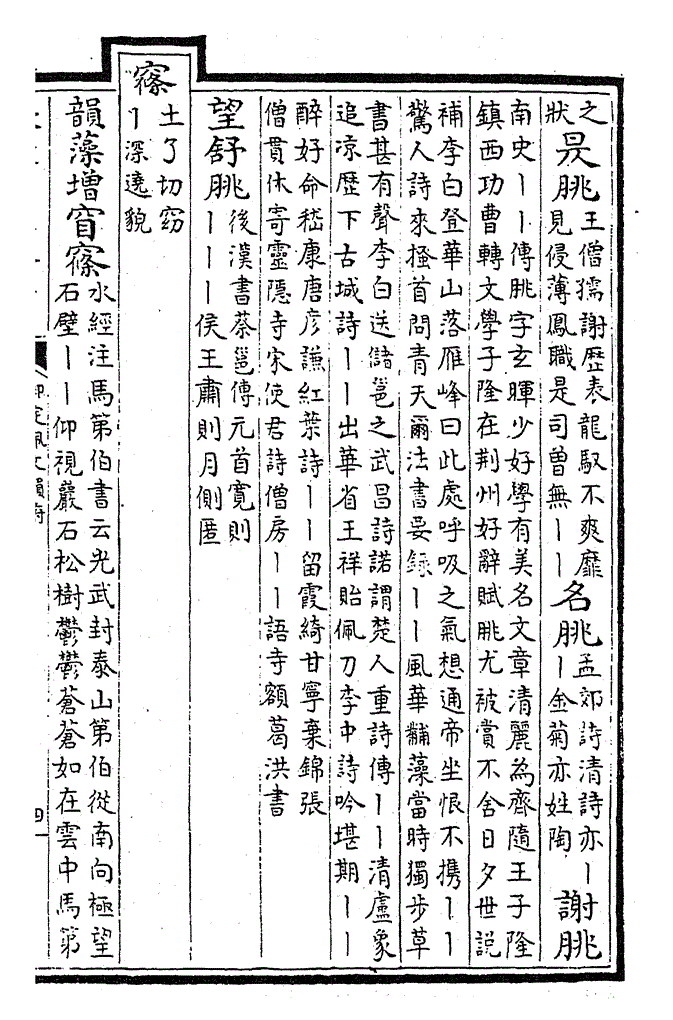 之
狀
是朓
王僧孺謝歷表龍馭不爽靡
見侵薄鳳職是司曾無丨丨
名朓
孟郊詩清詩亦丨
丨金菊亦姓陶
謝朓
南史丨丨傳朓字玄暉少好學有美名文章清麗為齊隨王子隆
鎮西功曹轉文學子隆在荆州好辭賦朓尤被賞不舍日夕世説
補李白登華山落雁峰曰此處呼吸之氣想通帝坐恨不携丨丨
驚人詩來搔首問青天爾法書要錄丨丨風華黼藻當時獨步草
書甚有聲李白送儲邕之武昌詩諾謂楚人重詩傳丨丨清盧象
追凉歷下古城詩丨丨出華省王祥貽佩刀李中詩吟堪期丨丨
醉好命嵇康唐彦謙紅葉詩丨丨留霞綺甘寧棄錦張
僧貫休寄靈隱寺宋使君詩僧房丨丨語寺額葛洪書
望舒朓
後漢書蔡邕傳元首寛則
丨丨丨侯王肅則月側匿
窱
土了切窈
丨深遠貌
韻藻增窅窱
水經注馬第伯書云光武封泰山第伯從南向極望
石壁丨丨仰視巖石松樹鬱鬱蒼蒼如在雲中馬第